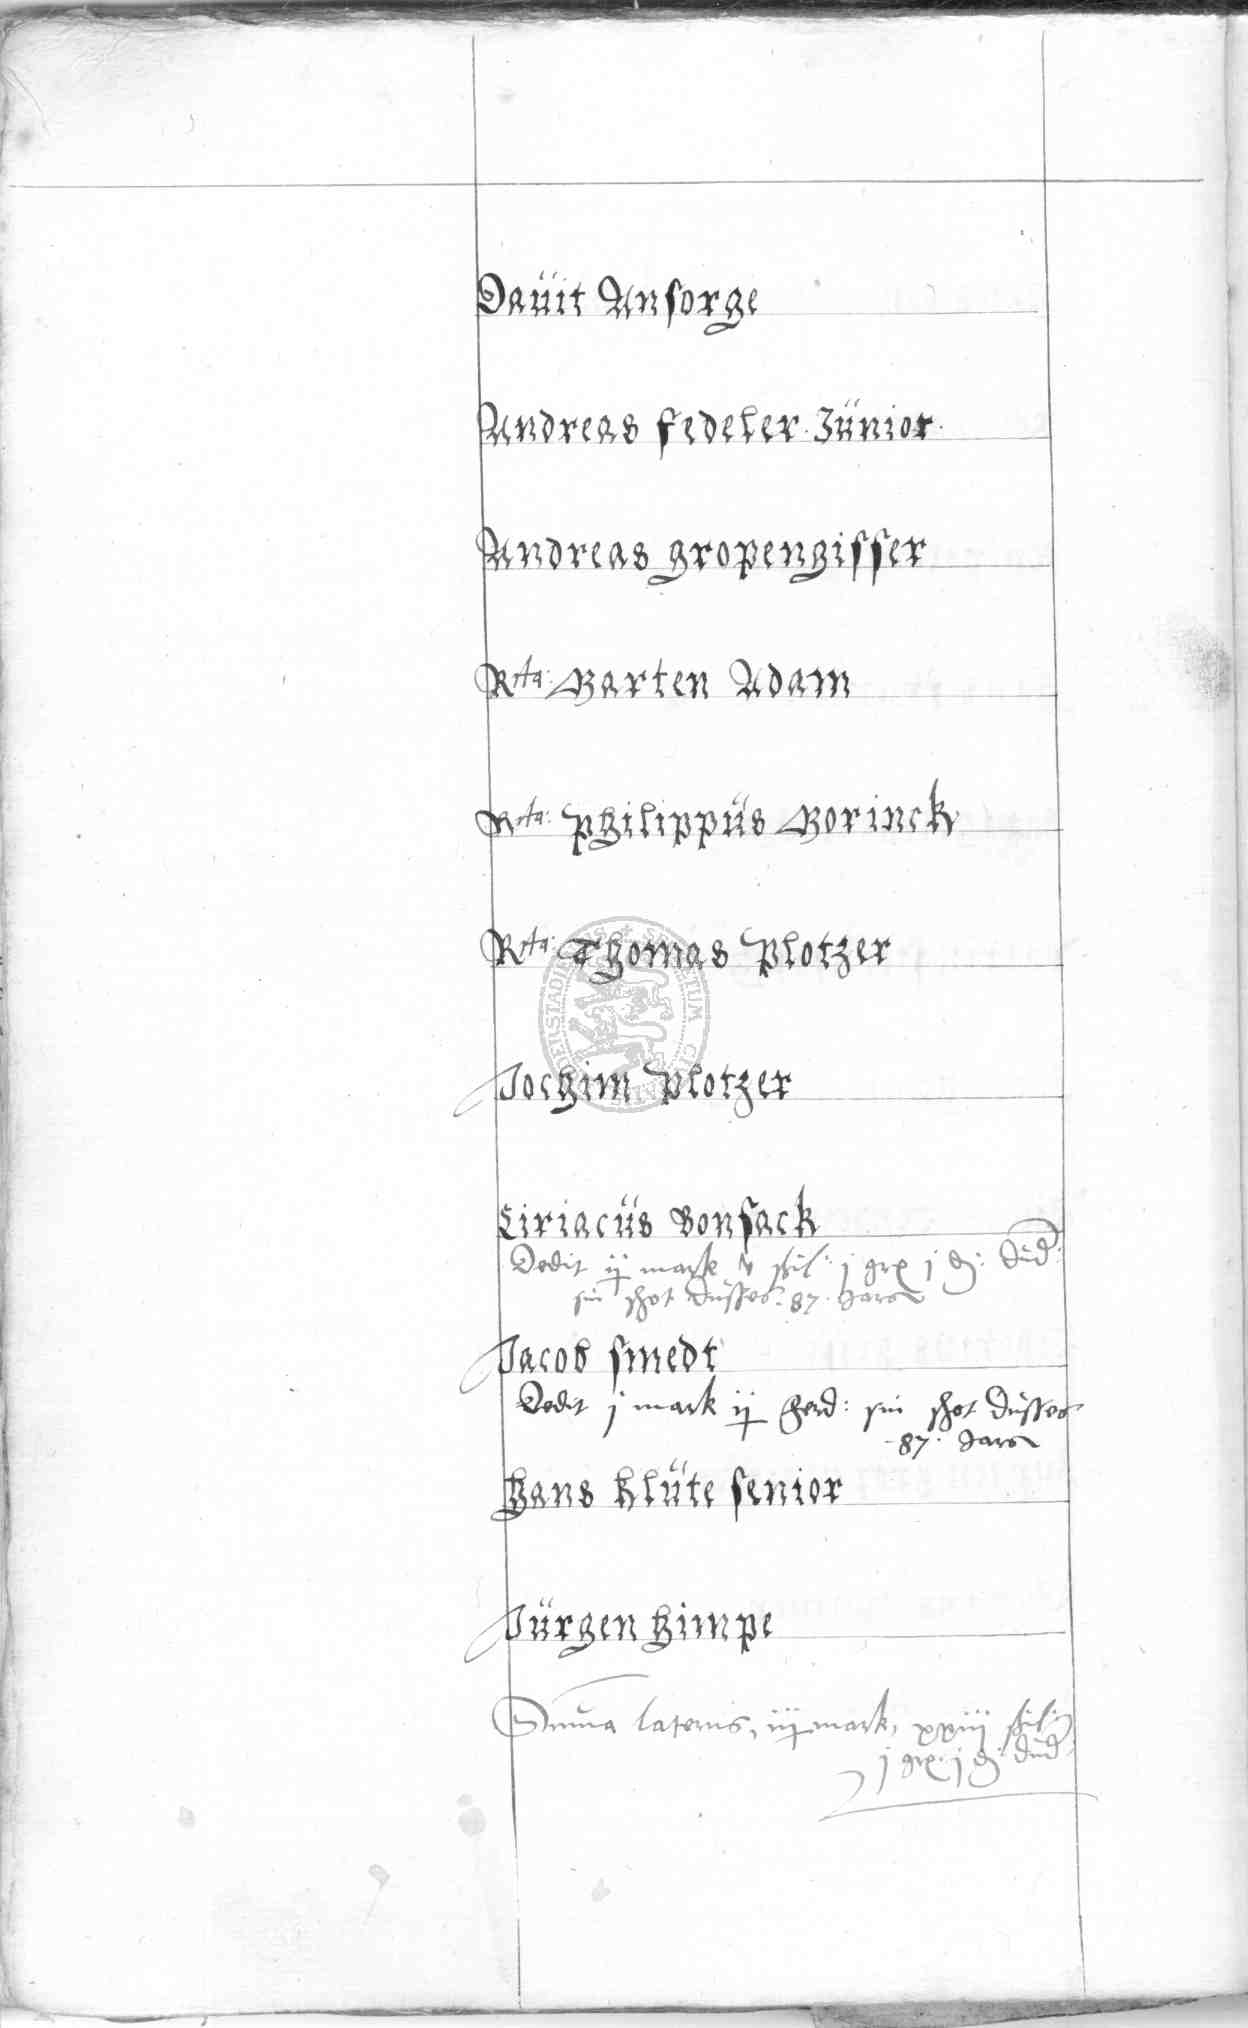 Dauit Ansorge
Andreas fedeler Junior
Andreas gropengisser
Rta: Barten Adam
Rta: philippus Borinck
Rta: Thomas plotzer
Jochim plotzer
Ciriacus Bonsack
Dedit ij mark v schil: j grp j
sin schot dusses 87 Jares
Jacob smedt
Dedit j mark ij ferd: sin schot dusses
87 Jares
Hans klute senior
Jurgen himpe
Summa lateris, iij mark, xxiij schil:
j grp: j